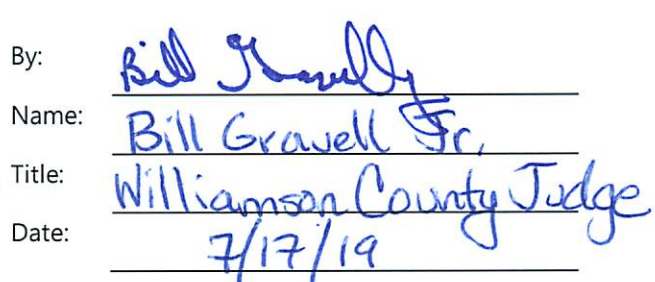 By: Bill Gravell
Name: Bill Gravell Jr.
Title: Williamson County Judge
Date: 7/17/19